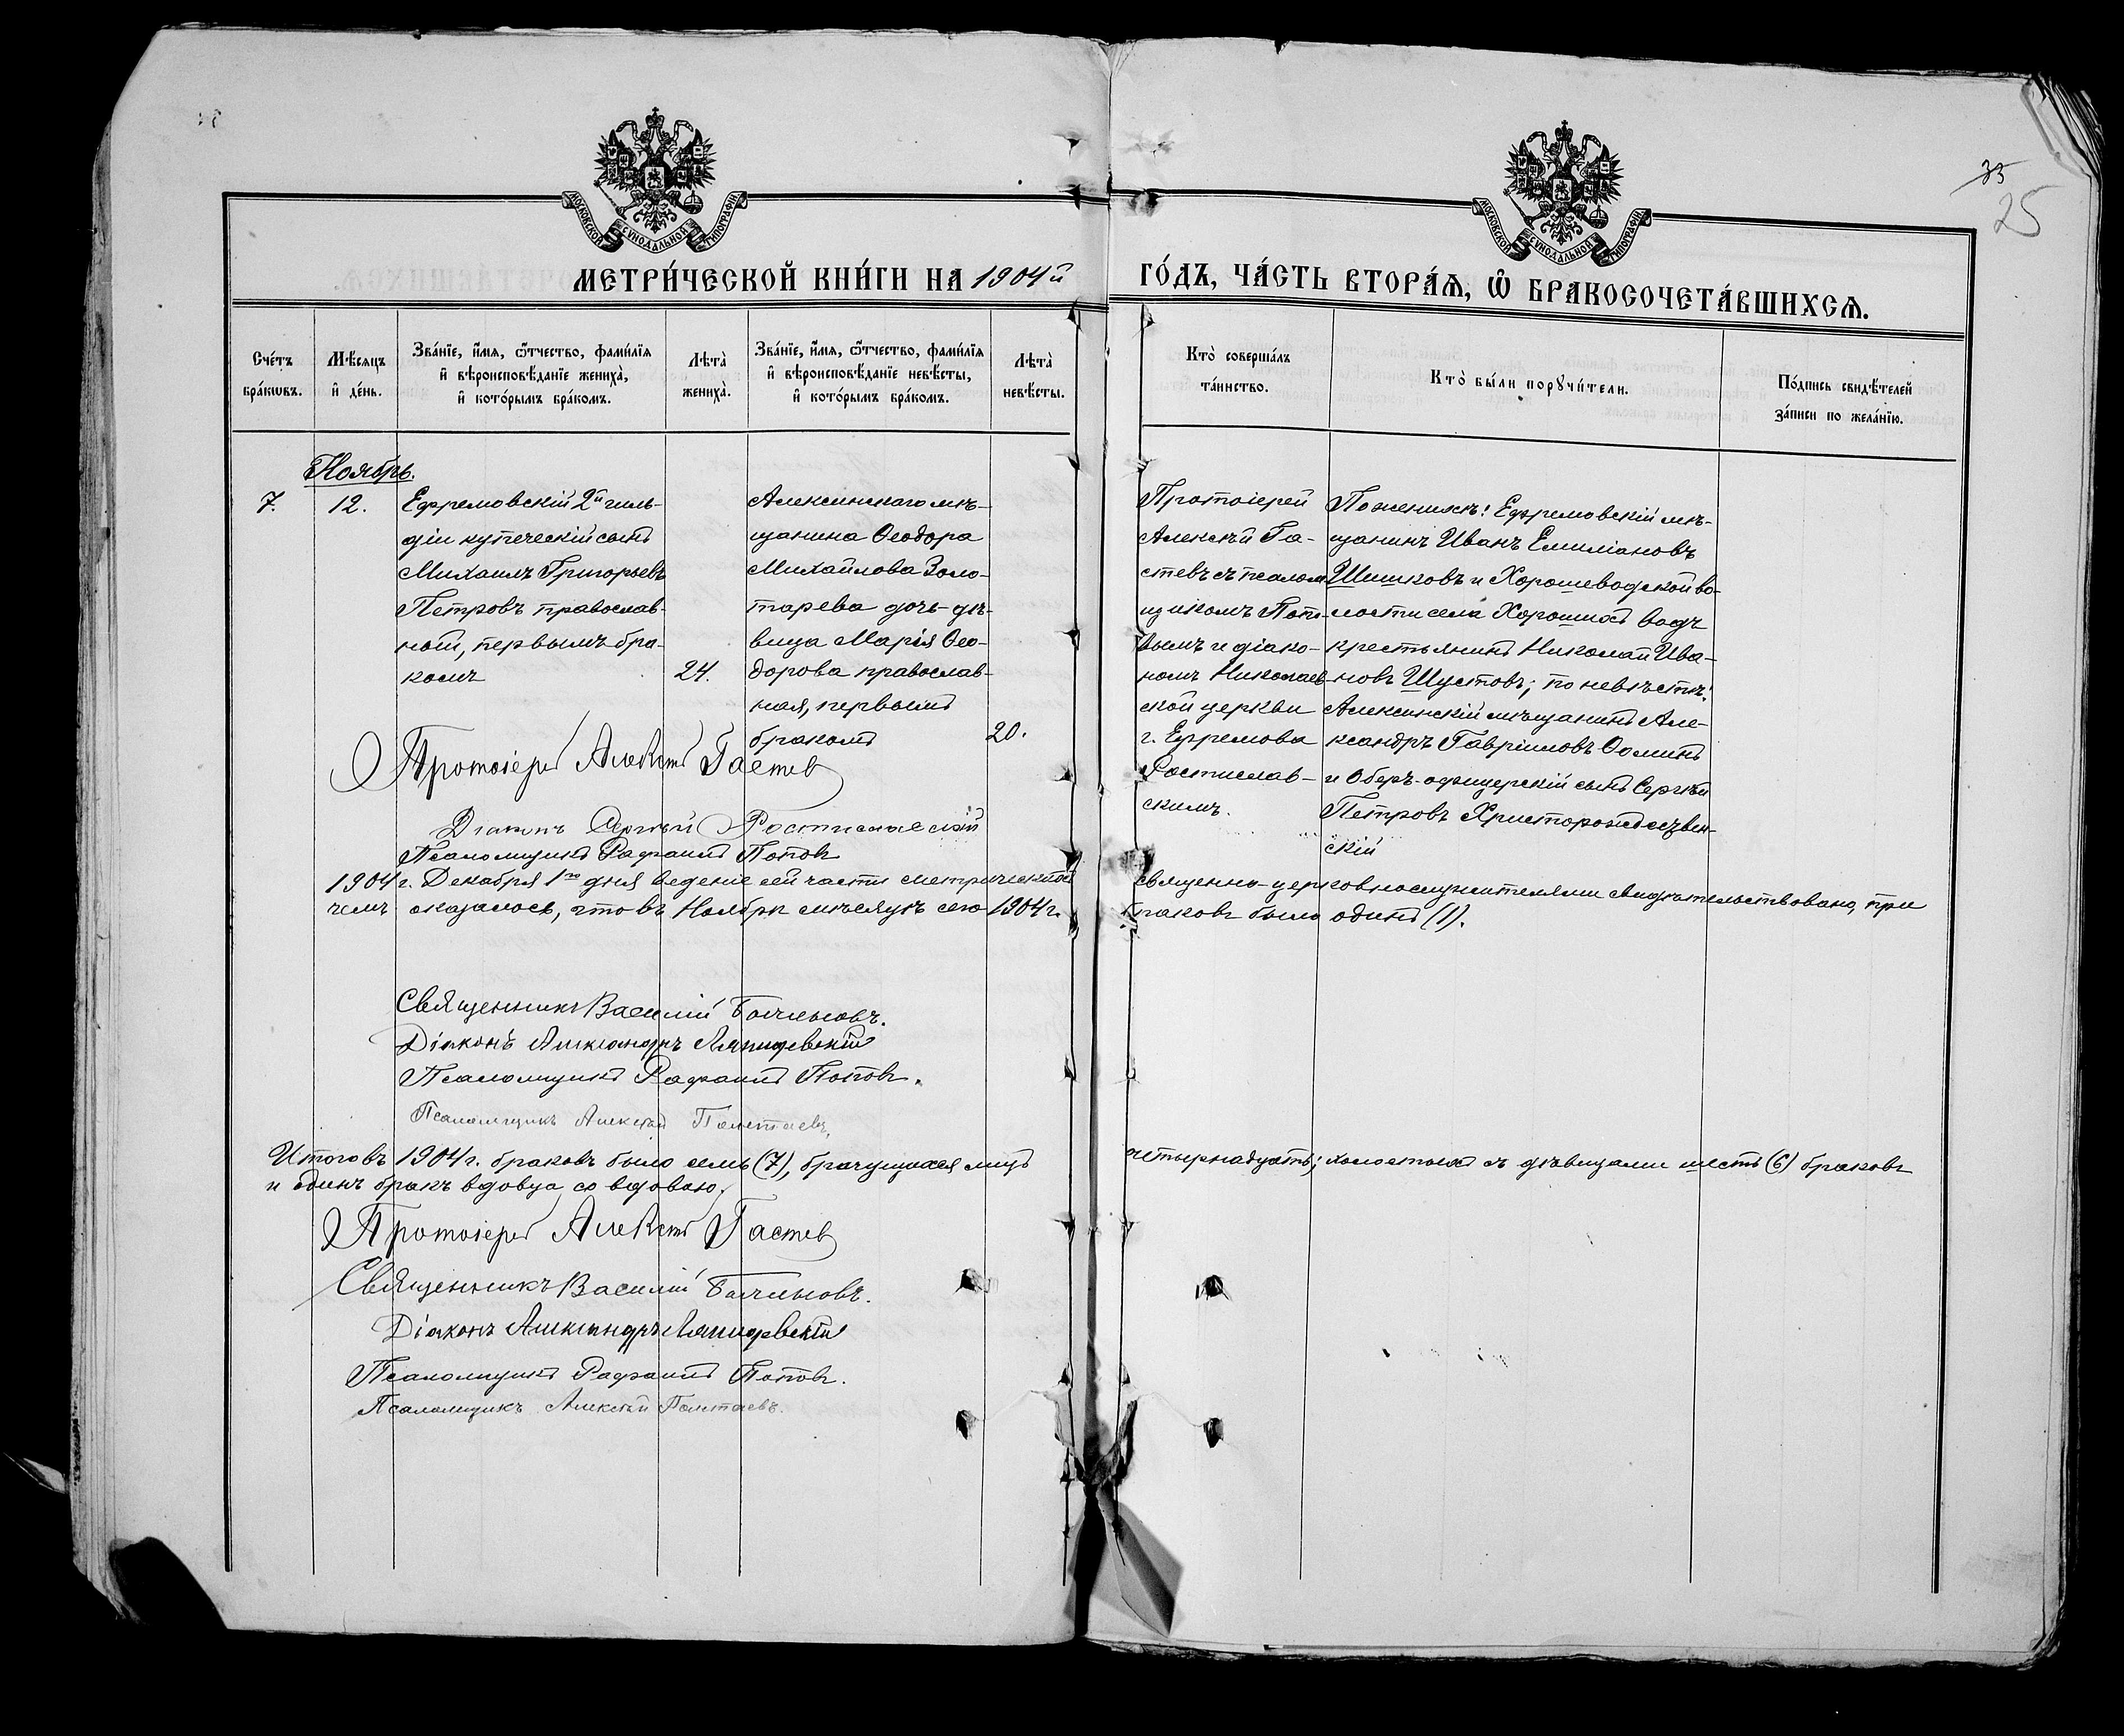 35
25
МОСКОВСКОЙ СѴНОДАЛЬНОЙ ТИПОГРАФІИ
МОСКОВСКОЙ СѴНОДАЛЬНОЙ ТИПОГРАФІИ
МЕТРИ́ЧЕСКОЙ КНИ́ГИ НА 1904й
ГО́ДЪ, ЧА́СТЬ ВТОРА́Ѧ, Ѽ БРАКОСОЧЕТА́ВШИХСѦ.
Сче́тъ
бра́кѡвъ.
Мѣ́сѧцъ
и҆ де́нь.
Зва́нїе, и҆́мѧ, ѻ҆́тчество, фами́лїѧ
и҆ вѣроисповѣ́данїе жениха̀,
и҆ кото́рымъ бра́комъ.
Лѣ̀та̀
жениха̀.
Зва́нїе, и҆́мѧ, ѻ҆́тчество, фами́лїѧ
и҆ вѣроисповѣ́данїе невѣ́сты,
и҆ кото́рымъ бра́комъ.
Лѣ̀та̀
невѣ́сты.
Кто̀ соверша́лъ
та́инство.
Кто̀ бы́ли порꙋчи́тели.
По́дпись свидѣ́телей
за́писи по жела́нїю.
Ноябрь.
7.
12.
Ефремовскій 2й гиль-
діи купеческій сынъ
Михаилъ Григорьевъ
Петровъ православ-
ной, первымъ бра-
комъ
24.
Алексинскаго мѣ-
щанина Ѳеодора
Михайлова Золо-
тарева дочь-дѣ-
вица Марія Ѳео-
дорова православ-
ная, первымъ
бракомъ
20.
Протоіерей
Алексѣй Га-
стевъ съ псалом
щикомъ Попо-
вымъ и діако-
номъ Николаев-
ской церкви
г. Ефремова
Ростислав-
скимъ.
По женихѣ: Ефремовскій мѣ-
щанинъ Иванъ Емиліановъ
Шишковъ и Хорошеводской во-
лости села Хорошихъ Водъ
крестьянинъ Николай Ива-
новъ Шустовъ; по невѣстѣ:
Алексинскій мѣщанинъ Але-
ксандръ Гавріиловъ Ѳоминъ
и Оберъ-офицерскій сынъ Сергѣй
Петровъ Христорождествен-
скій
Протоіерей Алексѣй Гастев
Діаконъ Сергѣй Ростиславскій
Псаломщикъ Рафаилъ Попов
1904 г. Декабря 1го дня веденіе сей части метрической священно-церковнослужителями свидѣтельствовано, при
чемъ оказалось, что въ Ноябрѣ мѣсяцѣ сего 1904 г. браковъ было одинъ (1).
Священникъ Василій
Діаконъ Александръ Ляпидевскій
Псаломщикъ Рафаилъ Попов.
Псаломщикъ Алексѣй Полетаевъ.
Итого въ 1904 г. браковъ было семь (7), брачущихся лицъ четырнадцать; холостыхъ съ дѣвицами шесть (6) браковъ
и одинъ бракъ вдовца со вдовою.
Протоіерей Алексѣй Гастев
Священникъ Василій
Діаконъ Александръ Ляпидевскій
Псаломщикъ Рафаилъ Попов.
Псаломщикъ Алексѣй Полетаевъ.